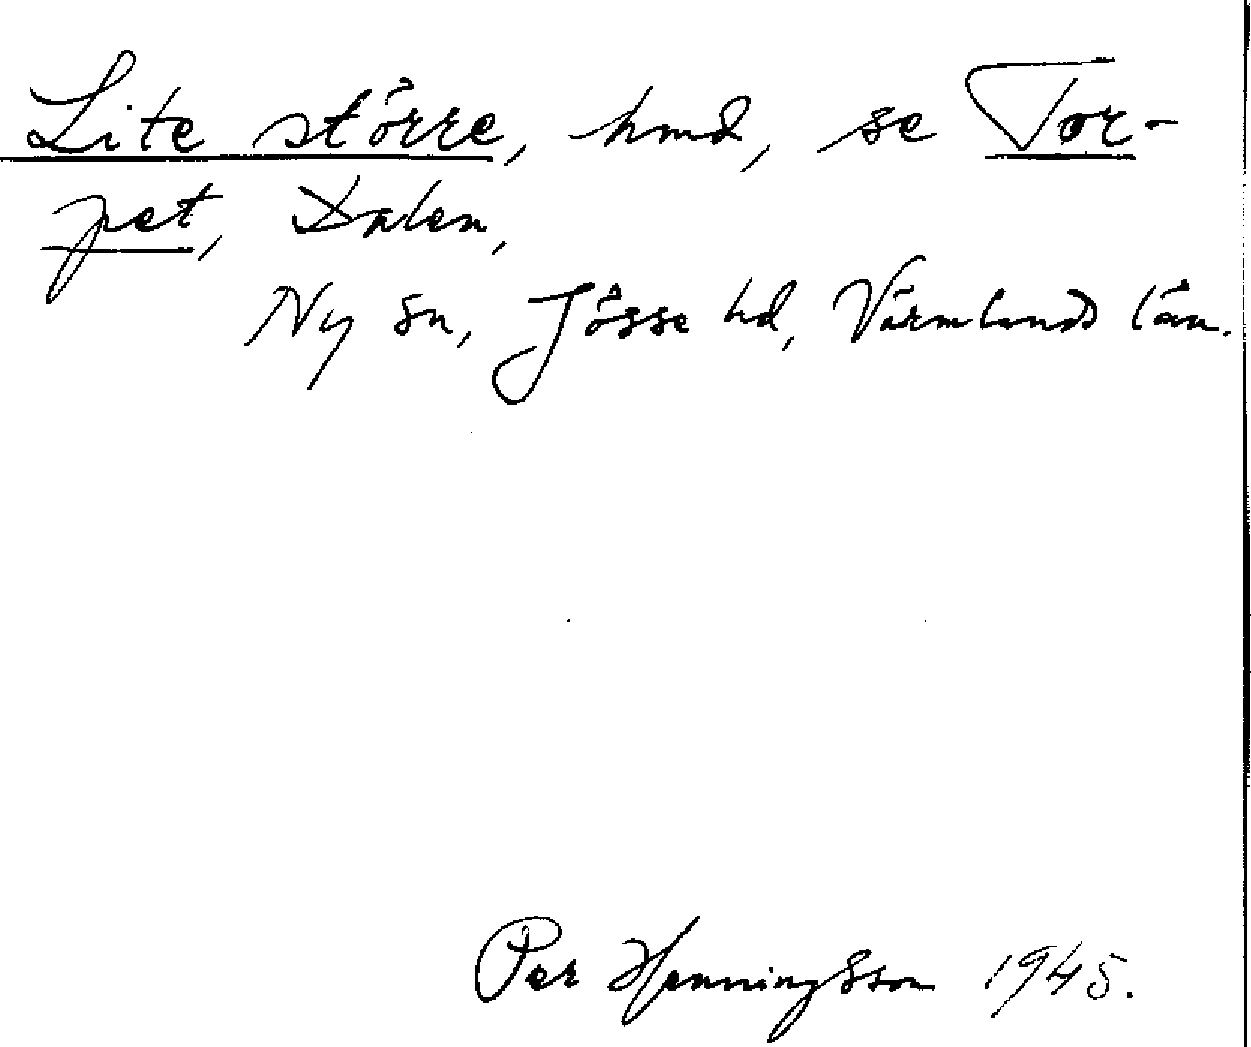 Lite större, hmd, se Tor-
pet, Dalen,
Ny sn, Jösse hd, Värmlands län.
Per Henningsson 1945.